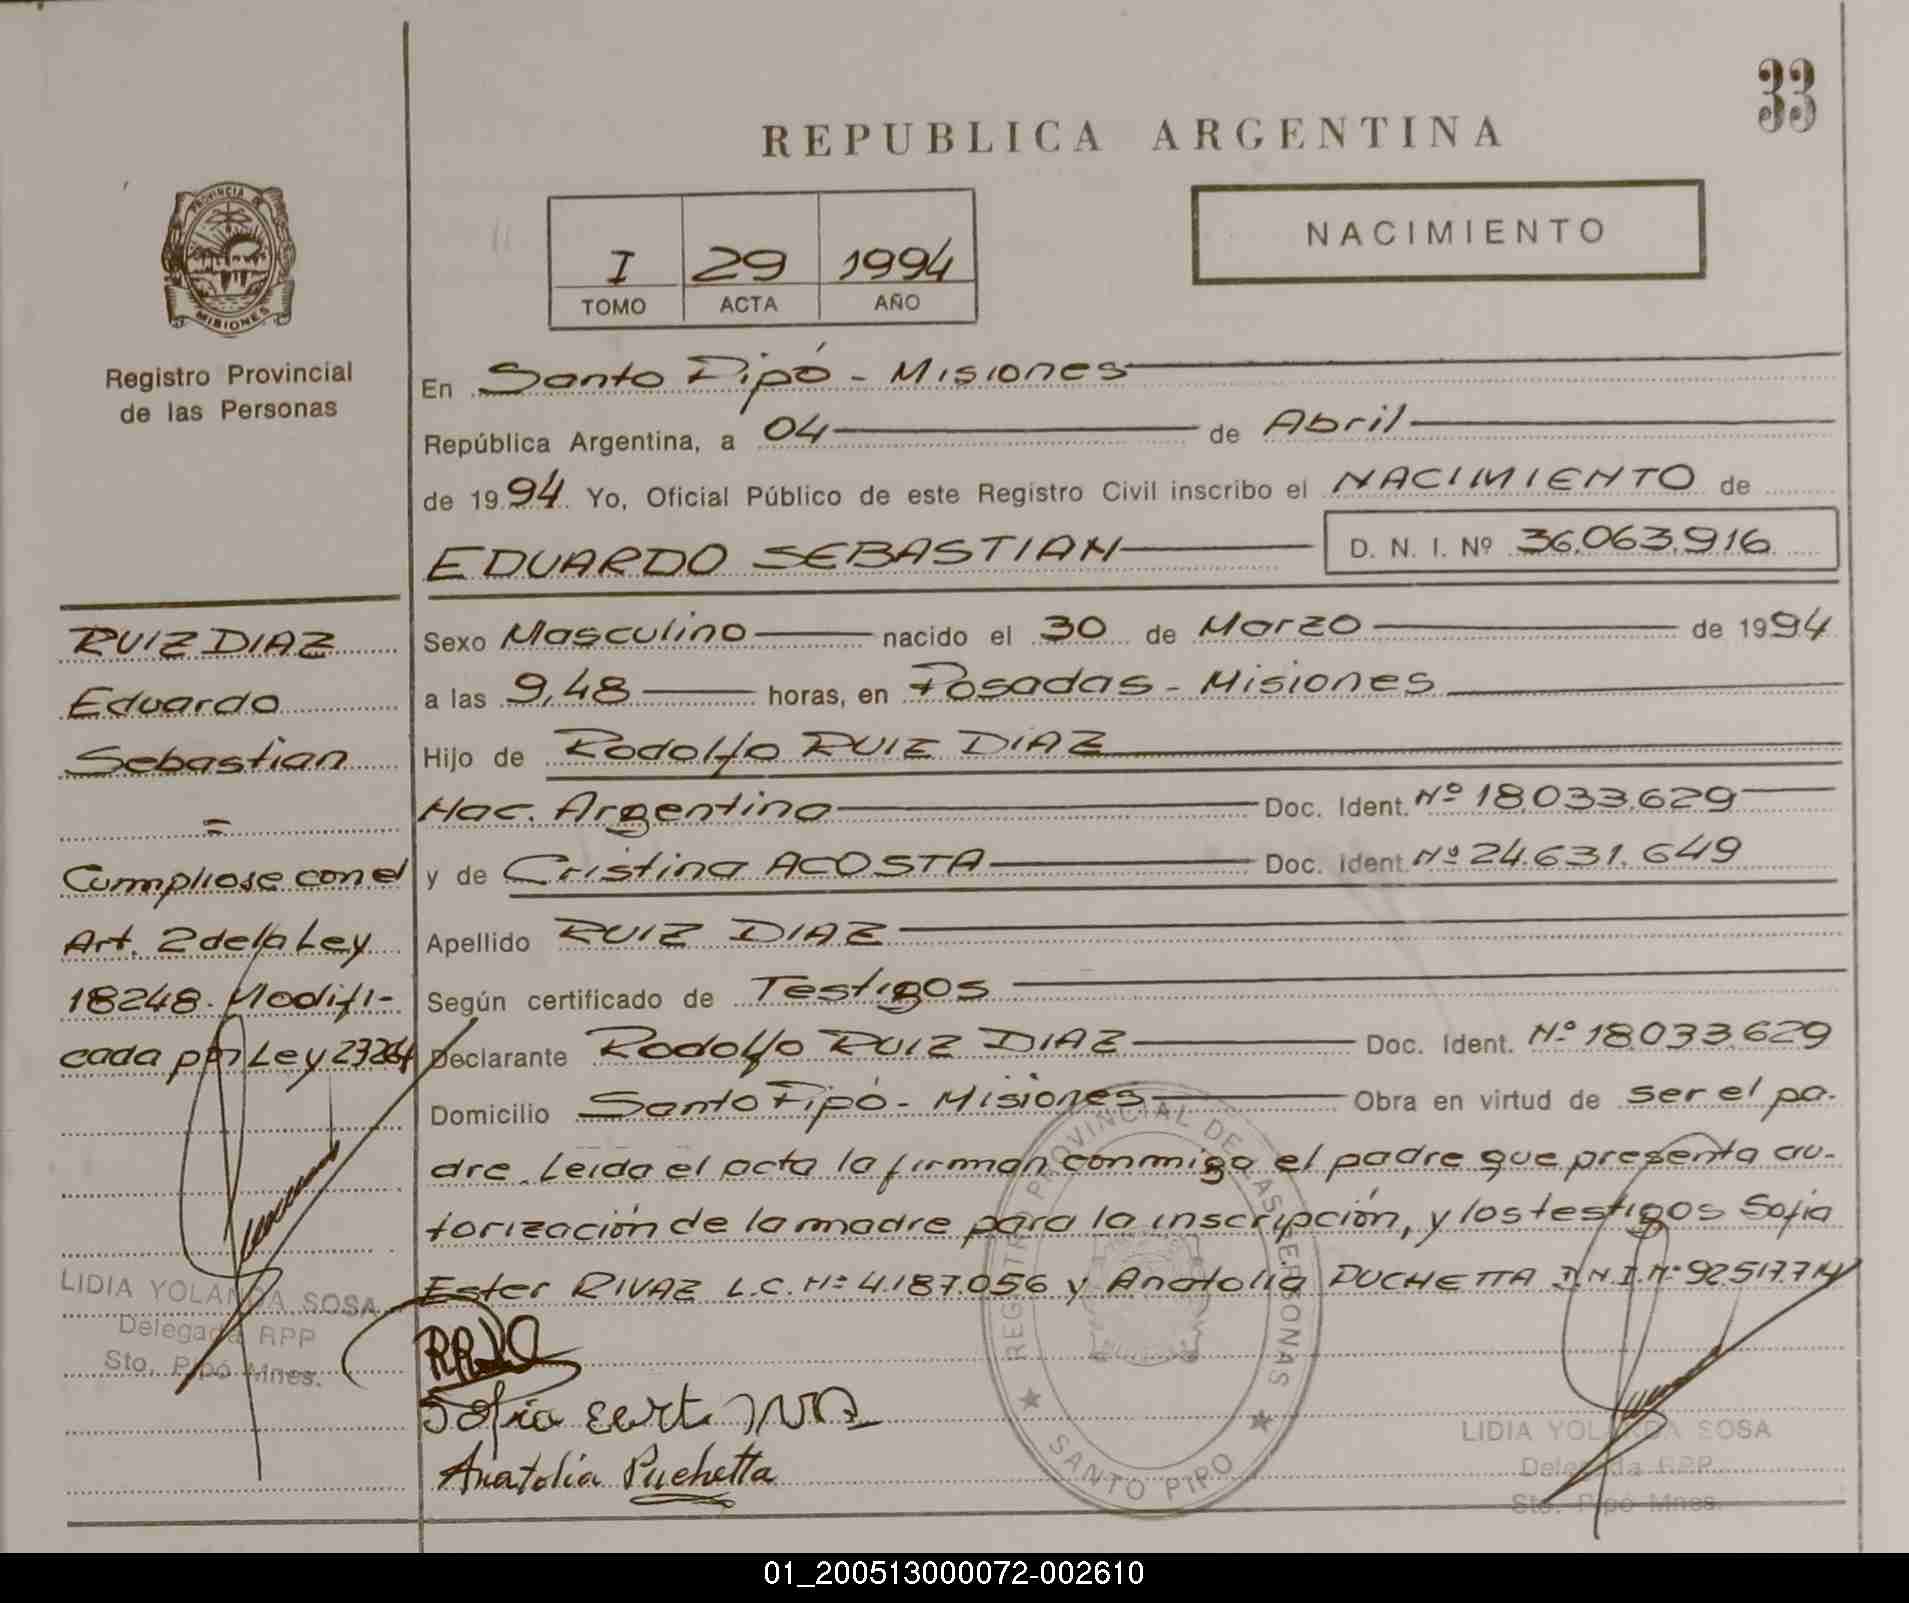 33
REPUBLICA ARGENTINA
NACIMIENTO
I 29 1994
TOMO ACTA AÑO
PROVINCIA DE MISIONES
Registro Provincial
de las Personas
En Santo Pipó - Misiones
República Argentina, a 04 de Abril
de 1994 Yo, Oficial Público de este Registro Civil inscribo el NACIMIENTO de
EDUARDO SEBASTIAN D. N. I. Nº 36.063.916
Sexo Masculino nacido el 30 de Marzo de 1994
a las 9,48 horas, en Posadas - Misiones
Hijo de Rodolfo RUIZ DIAZ
Nac. Argentino Doc. Ident. Nº 18.033.629
y de Cristina ACOSTA Doc. Ident. Nº 24.631.649
Apellido RUIZ DIAZ
Según certificado de Testigos
Declarante Rodolfo RUIZ DIAZ Doc. Ident. Nº 18.033.629
Domicilio Santo Pipó - Misiones Obra en virtud de ser el pa-
dre. Leida el acta la firman conmigo el padre que presenta au-
torización de la madre para la inscripción, y los testigos Sofia
Ester RIVAZ L.C. Nº 4.187.056 y Anatolia PUCHETTA D.N.I. Nº 92.517.714
Sofia
Anatolia Puchetta
RUIZ DIAZ
Eduardo
Sebastian
=
Cumpliose con el
Art. 2 de la Ley
18248. Modifi-
cada por Ley 23264
LIDIA YOLANDA SOSA
Delegada RPP
Sto. Pipó Mnes.
REGISTRO PROVINCIAL DE LAS PERSONAS
SANTO PIPO
LIDIA YOLANDA SOSA
Delegada RPP
Sto. Pipó Mnes.
01_200513000072-002610